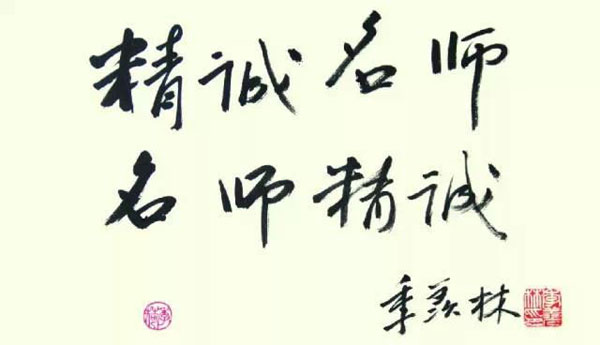 精诚名师
名师精诚
季羡林